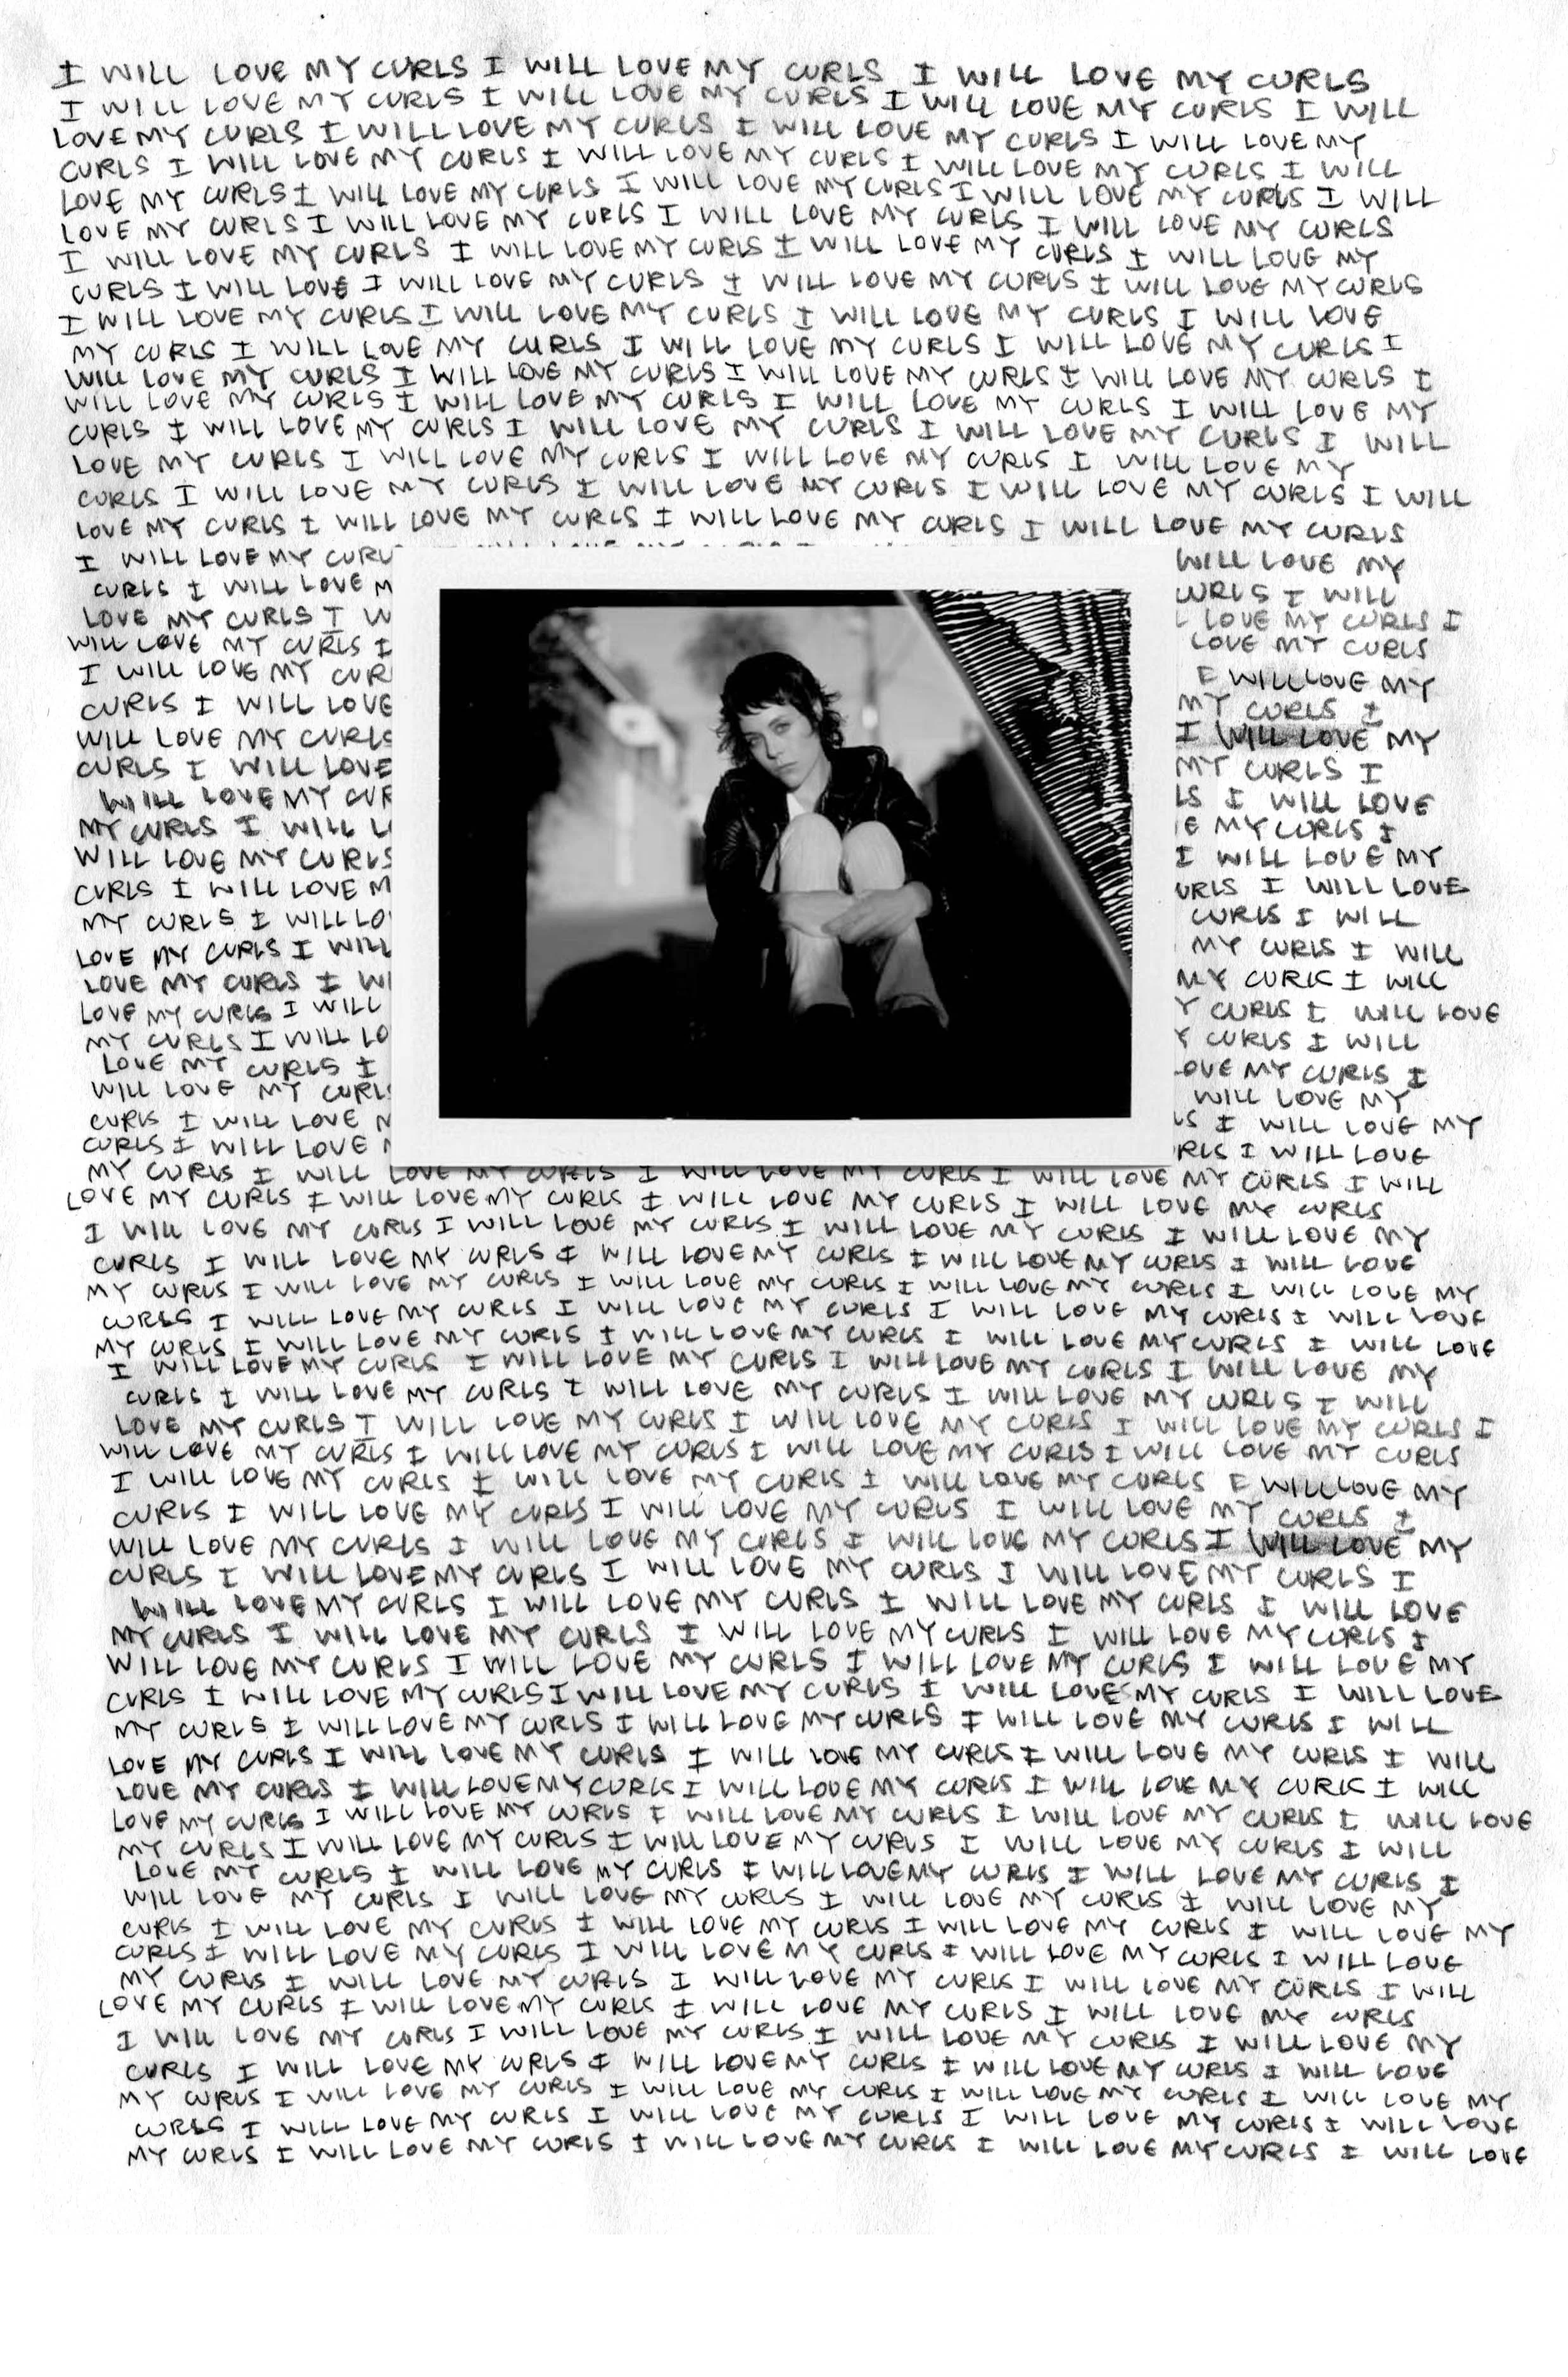 I WILL LOVE MY CURLS I WILL LOVE MY CURLS I WILL LOVE MY CURLS
I WILL LOVE MY CURLS I WILL LOVE MY CURLS I WILL LOVE MY CURLS I WILL
LOVE MY CURLS I WILL LOVE MY CURLS I WILL LOVE MY CURLS I WILL LOVE MY
CURLS I WILL LOVE MY CURLS I WILL LOVE MY CURLS I WILL LOVE MY CURLS I WILL
LOVE MY CURLS I WILL LOVE MY CURLS I WILL LOVE MY CURLS I WILL LOVE MY CURLS I WILL
LOVE MY CURLS I WILL LOVE MY CURLS I WILL LOVE MY CURLS I WILL LOVE MY CURLS
I WILL LOVE MY CURLS I WILL LOVE MY CURLS I WILL LOVE MY CURLS I WILL LOVE MY
CURLS I WILL LOVE I WILL LOVE MY CURLS I WILL LOVE MY CURLS I WILL LOVE MY CURLS
I WILL LOVE MY CURLS I WILL LOVE MY CURLS I WILL LOVE MY CURLS I WILL LOVE
MY CURLS I WILL LOVE MY CURLS I WILL LOVE MY CURLS I WILL LOVE MY CURLS I
WILL LOVE MY CURLS I WILL LOVE MY CURLS I WILL LOVE MY CURLS I WILL LOVE MY CURLS I
WILL LOVE MY CURLS I WILL LOVE MY CURLS I WILL LOVE MY CURLS I WILL LOVE MY
CURLS I WILL LOVE MY CURLS I WILL LOVE MY CURLS I WILL LOVE MY CURLS I WILL
LOVE MY CURLS I WILL LOVE MY CURLS I WILL LOVE MY CURLS I WILL LOVE MY
CURLS I WILL LOVE MY CURLS I WILL LOVE MY CURLS I WILL LOVE MY CURLS I WILL
LOVE MY CURLS I WILL LOVE MY CURLS I WILL LOVE MY CURLS I WILL LOVE MY CURLS
I WILL LOVE MY WILL LOVE MY
CURLS I WILL LOVE I WILL
LOVE MY CURLS I LOVE MY CURLS I
WILL LOVE MY CURLS I LOVE MY CURLS
I WILL LOVE MY WILL LOVE MY
CURLS I WILL LOVE MY CURLS I
WILL LOVE MY CURLS I WILL LOVE MY
CURLS I WILL LOVE MY CURLS I
WILL LOVE MY I WILL LOVE
MY CURLS I WILL MY CURLS I
WILL LOVE MY CURLS I WILL LOVE MY
CURLS I WILL LOVE I WILL LOVE
MY CURLS I WILL CURLS I WILL
LOVE MY CURLS I WILL MY CURLS I WILL
LOVE MY CURLS I MY CURLS I WILL
LOVE MY CURLS I WILL CURLS I WILL LOVE
MY CURLS I WILL CURLS I WILL
LOVE MY CURLS I MY CURLS I
WILL LOVE MY WILL LOVE MY
CURLS I WILL LOVE I WILL LOVE MY
CURLS I WILL LOVE I WILL LOVE
MY CURLS I WILL LOVE MY CURLS I WILL LOVE MY CURLS I WILL LOVE MY CURLS I WILL
LOVE MY CURLS I WILL LOVE MY CURLS I WILL LOVE MY CURLS I WILL LOVE MY CURLS
I WILL LOVE MY CURLS I WILL LOVE MY CURLS I WILL LOVE MY CURLS I WILL LOVE MY
CURLS I WILL LOVE MY CURLS I WILL LOVE MY CURLS I WILL LOVE MY CURLS I WILL LOVE
MY CURLS I WILL LOVE MY CURLS I WILL LOVE MY CURLS I WILL LOVE MY CURLS I WILL LOVE MY
CURLS I WILL LOVE MY CURLS I WILL LOVE MY CURLS I WILL LOVE MY CURLS I WILL LOVE
MY CURLS I WILL LOVE MY CURLS I WILL LOVE MY CURLS I WILL LOVE MY CURLS I WILL LOVE
I WILL LOVE MY CURLS I WILL LOVE MY CURLS I WILL LOVE MY CURLS I WILL LOVE MY
CURLS I WILL LOVE MY CURLS I WILL LOVE MY CURLS I WILL LOVE MY CURLS I WILL
LOVE MY CURLS I WILL LOVE MY CURLS I WILL LOVE MY CURLS I WILL LOVE MY CURLS I
WILL LOVE MY CURLS I WILL LOVE MY CURLS I WILL LOVE MY CURLS I WILL LOVE MY CURLS
I WILL LOVE MY CURLS I WILL LOVE MY CURLS I WILL LOVE MY CURLS I WILL LOVE MY
CURLS I WILL LOVE MY CURLS I WILL LOVE MY CURLS I WILL LOVE MY CURLS I
WILL LOVE MY CURLS I WILL LOVE MY CURLS I WILL LOVE MY CURLS I WILL LOVE MY
CURLS I WILL LOVE MY CURLS I WILL LOVE MY CURLS I WILL LOVE MY CURLS I
WILL LOVE MY CURLS I WILL LOVE MY CURLS I WILL LOVE MY CURLS I WILL LOVE
MY CURLS I WILL LOVE MY CURLS I WILL LOVE MY CURLS I WILL LOVE MY CURLS I
WILL LOVE MY CURLS I WILL LOVE MY CURLS I WILL LOVE MY CURLS I WILL LOVE MY
CURLS I WILL LOVE MY CURLS I WILL LOVE MY CURLS I WILL LOVE MY CURLS I WILL LOVE
MY CURLS I WILL LOVE MY CURLS I WILL LOVE MY CURLS I WILL LOVE MY CURLS I WILL
LOVE MY CURLS I WILL LOVE MY CURLS I WILL LOVE MY CURLS I WILL LOVE MY CURLS I WILL
LOVE MY CURLS I WILL LOVE MY CURLS I WILL LOVE MY CURLS I WILL LOVE MY CURLS I WILL
LOVE MY CURLS I WILL LOVE MY CURLS I WILL LOVE MY CURLS I WILL LOVE MY CURLS I WILL LOVE
MY CURLS I WILL LOVE MY CURLS I WILL LOVE MY CURLS I WILL LOVE MY CURLS I WILL
LOVE MY CURLS I WILL LOVE MY CURLS I WILL LOVE MY CURLS I WILL LOVE MY CURLS I
WILL LOVE MY CURLS I WILL LOVE MY CURLS I WILL LOVE MY CURLS I WILL LOVE MY
CURLS I WILL LOVE MY CURLS I WILL LOVE MY CURLS I WILL LOVE MY CURLS I WILL LOVE MY
CURLS I WILL LOVE MY CURLS I WILL LOVE MY CURLS I WILL LOVE MY CURLS I WILL LOVE
MY CURLS I WILL LOVE MY CURLS I WILL LOVE MY CURLS I WILL LOVE MY CURLS I WILL
LOVE MY CURLS I WILL LOVE MY CURLS I WILL LOVE MY CURLS I WILL LOVE MY CURLS
I WILL LOVE MY CURLS I WILL LOVE MY CURLS I WILL LOVE MY CURLS I WILL LOVE MY
CURLS I WILL LOVE MY CURLS I WILL LOVE MY CURLS I WILL LOVE MY CURLS I WILL LOVE
MY CURLS I WILL LOVE MY CURLS I WILL LOVE MY CURLS I WILL LOVE MY CURLS I WILL LOVE MY
CURLS I WILL LOVE MY CURLS I WILL LOVE MY CURLS I WILL LOVE MY CURLS I WILL LOVE
MY CURLS I WILL LOVE MY CURLS I WILL LOVE MY CURLS I WILL LOVE MY CURLS I WILL LOVE